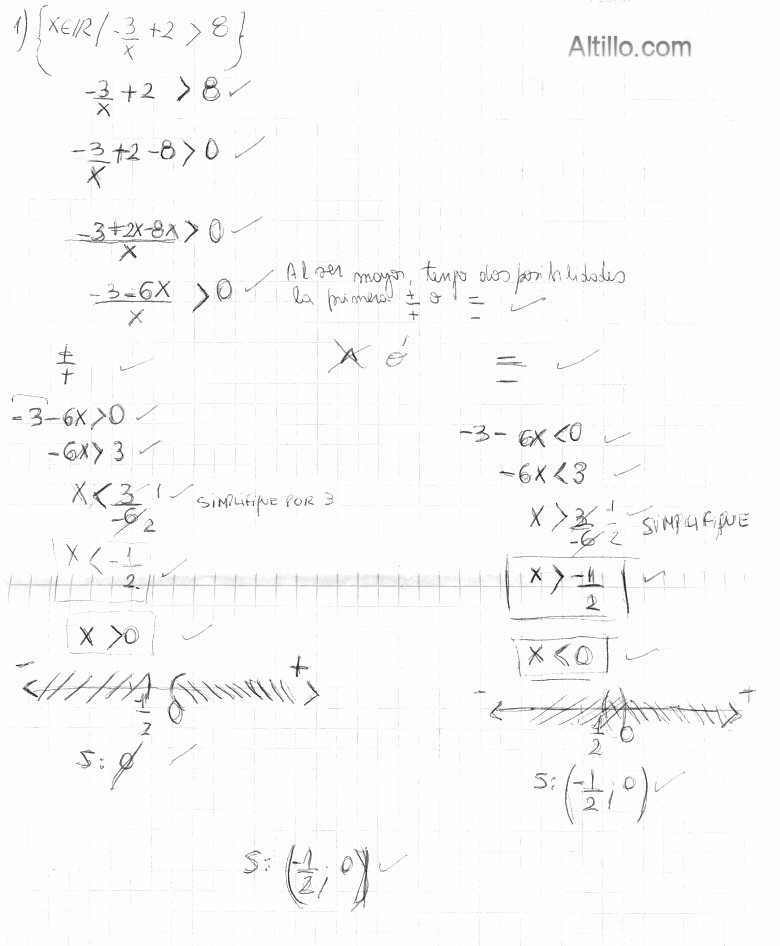 1) {x∈ℝ / -3/x + 2 > 8}
Altillo.com
-3/x + 2 > 8 ✓
-3/x + 2 - 8 > 0 ✓
(-3+2x-8x)/x > 0 ✓
(-3-6x)/x > 0 ✓
Al ser mayor, tengo dos posibilidades
la primera +/+ o -/- ✓
+/+ ✓
-3-6x>0 ✓
-6x>3 ✓
x < 3/-6 1/2 ✓ SIMPLIFIQUE POR 3
x < -1/2 ✓
x > 0 ✓
- +
-1/2 0
S: ∅ ✓
ó
-/- ✓
-3-6x<0 ✓
-6x<3 ✓
x > 3/-6 1/2 ✓ SIMPLIFIQUE
x > -1/2 ✓
x < 0 ✓
- +
-1/2 0
S: (-1/2 ; 0) ✓
S: (-1/2 ; 0) ✓